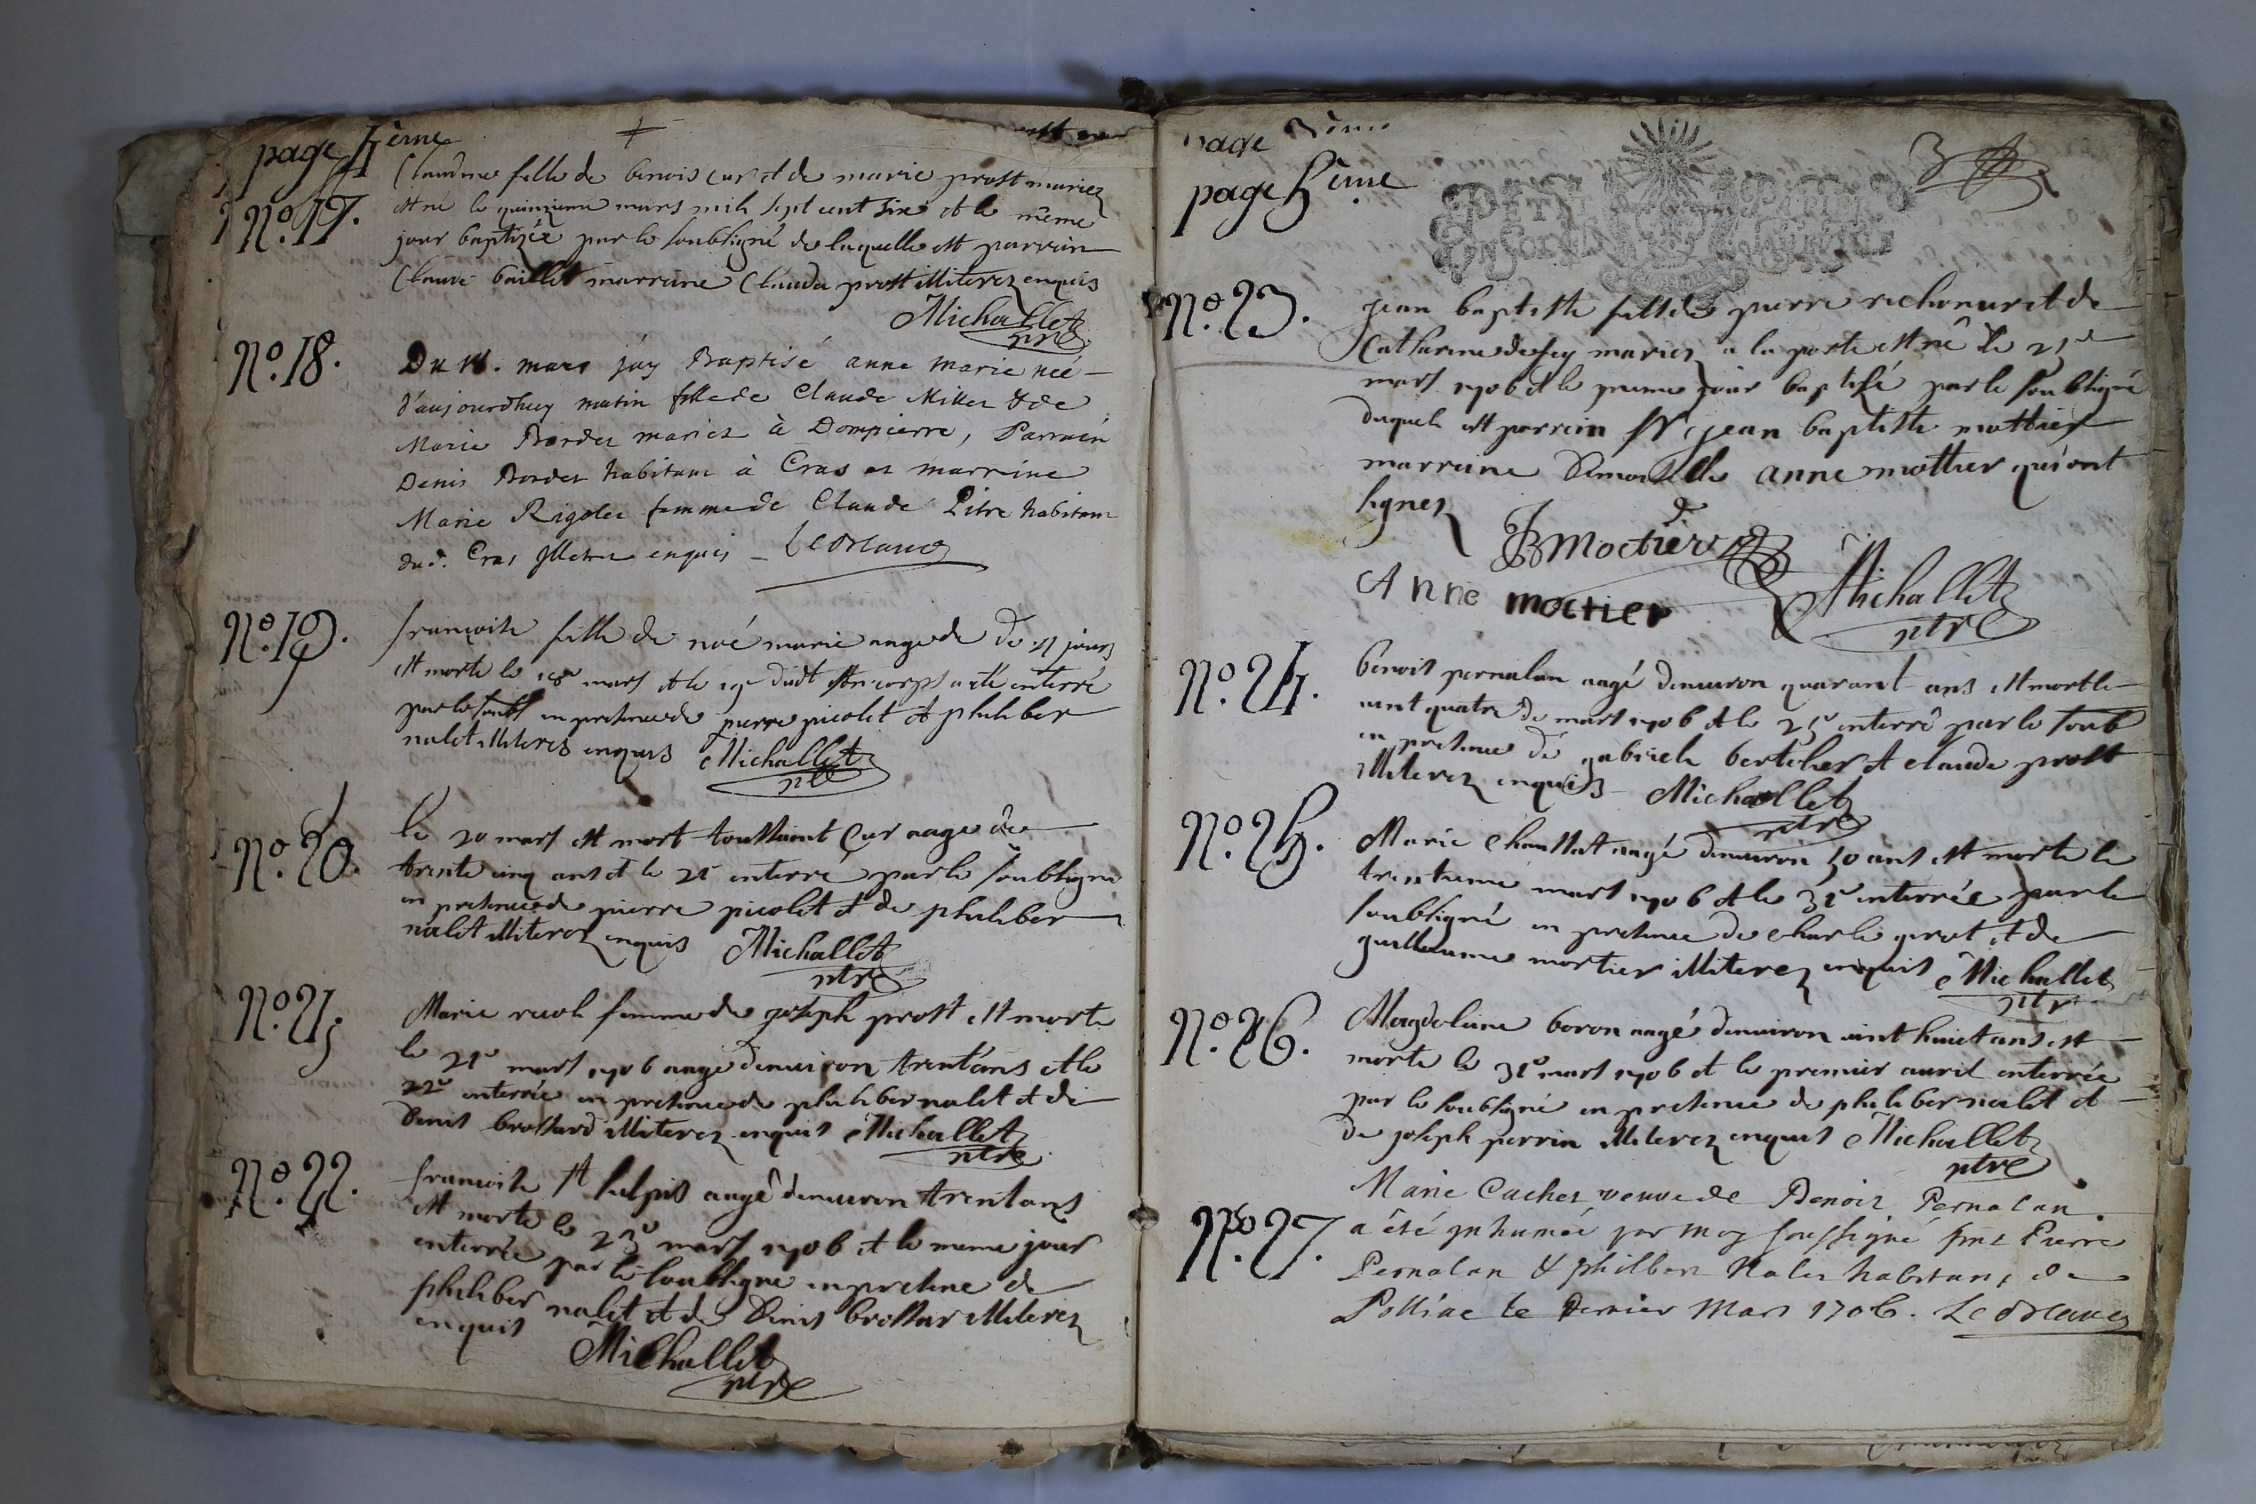 page 4 ème
No. 17.
Claudine fille de benois cur et de marie prost mariez
est né le quinzieme mars mih sept cent six et le même
jour baptizée par le soubsigné de laquelle est parrain
Claude baillet marraine Clauda prost illiterez enquis
Michallet
ptre
No. 18.
Du 16. mars jáy Baptisé anne marie neé
d'aujourdhuy matin fille de Claude Millet & de
Marie Bordet mariez à Dompierre, Parrain
Denis Bordet habitant à Cras et marreine
Marie Rigolet femme de Claude Pitre habitant
dud. Cras Illetré enquis Leorlaud
No. 19.
francoise fille de noé marie aagede de jours
est morte le 18e mars et le 19e dudt son corps a esté enterré
par le soubs en presence de pierre picolet et philiber
nalet illiterez enquis Michallet
ptre
No. 20.
le 20 mars est mort toussaint Cur aage de
trente cinq ans et le 21 enterré par le soubsigné
en presence de pierre picolet et de philiber
nalet illiterez enquis Michallet
ptre
No. 21
Marie femme de joseph prost est morte
le 21e mars 1706 aagé denuiron trent'ans et le
22e enterrée en presence de philiber nalet et de
Denis brossard illiterez enquis Michallet
ptre
No. 22.
francoise st sulpis aagé denuiron trentans
est morte le 23e mars 1706 et le meme jour
enterrée par le soubsigné en presene de
philiber nalet et de Denis brossar illiterez
enquis
Michallet
ptre
page 3ème
3
page 5 ème
No. 23.
jean baptiste fils de pierre richonur et de
Catherine defey mariez a la poste est né le 25e
mars 1706 et le jour baptisé par le soubsigné
duquel est parrein Sr. jean baptiste mottier
marreine Demoiselle anne mottier qui ont
signez
JB moctier
Anne moctier
Michallet
ptre
No. 24.
benois pernalan aagé denuiron quarant ans est mort le
uint quatre de mars 1706 et le 25e enterré par le soub
en presence de gabrieh bertelier et claude prost
illiterez enquis Michallet
ptre
No. 25.
Marie chaussat aagé denuiron 50 ans est morte le
trentieme mars 1706 et le 31e enterrée par le
soubsigné en presence de charle prost et de
guillaume mortier illiterez enquis Michallet
ptre
No. 26.
Magdelaine boron aagé denuiron uint huict ans est
morte le 31e mars 1706 et le premier auril enterrée
par le soubsigné en presence de philiber nalet et
de joseph perrin illiterez enquis Michallet
ptre
No. 27.
Marie Cachet veuve de Benoit Pernalan
a été inhumée par moy soussigné Pierre
Pernalan & philbert Nalet habitans de
Polliac le Dernier Mars 1706. Leorlaud